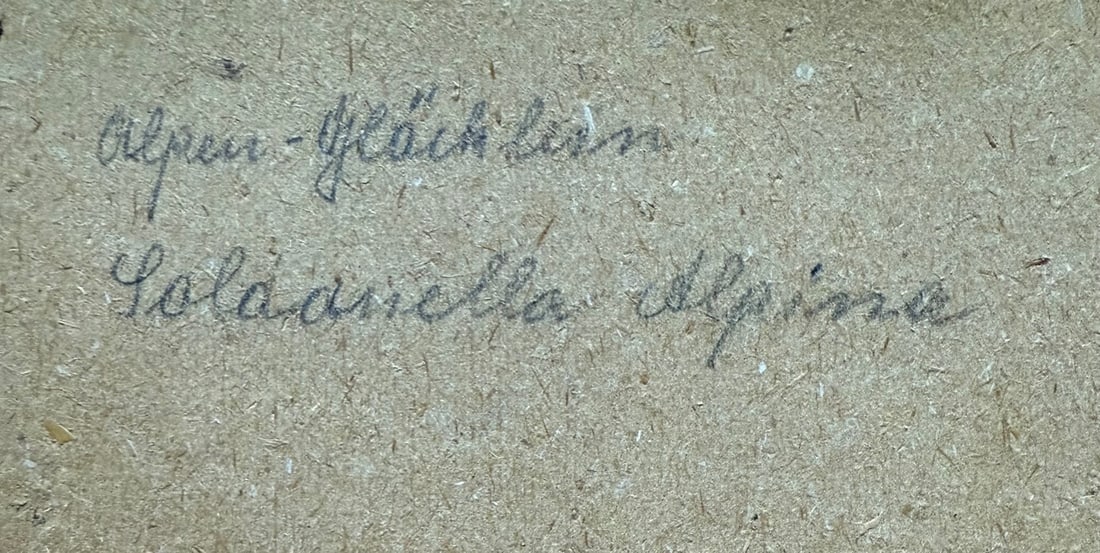 Alpen-Glöcklein
Soldanella Alpina